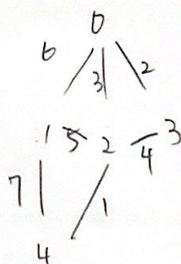 0
6 3 2
1 5 2 4 3
7 1
4